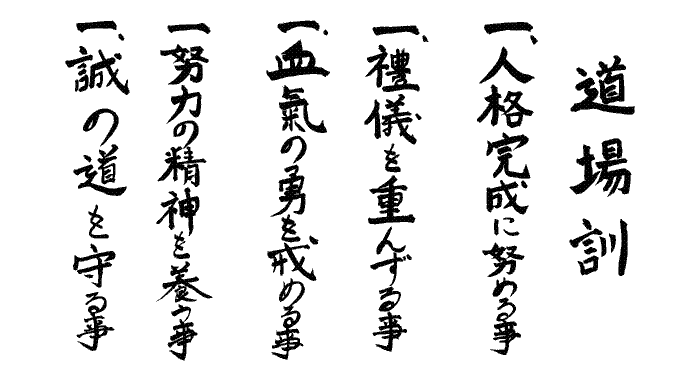 道場訓
一、人格完成に努める事
一、禮儀を重んずる事
一、血氣の勇を戒める事
一、努力の精神を養う事
一、誠の道を守る事